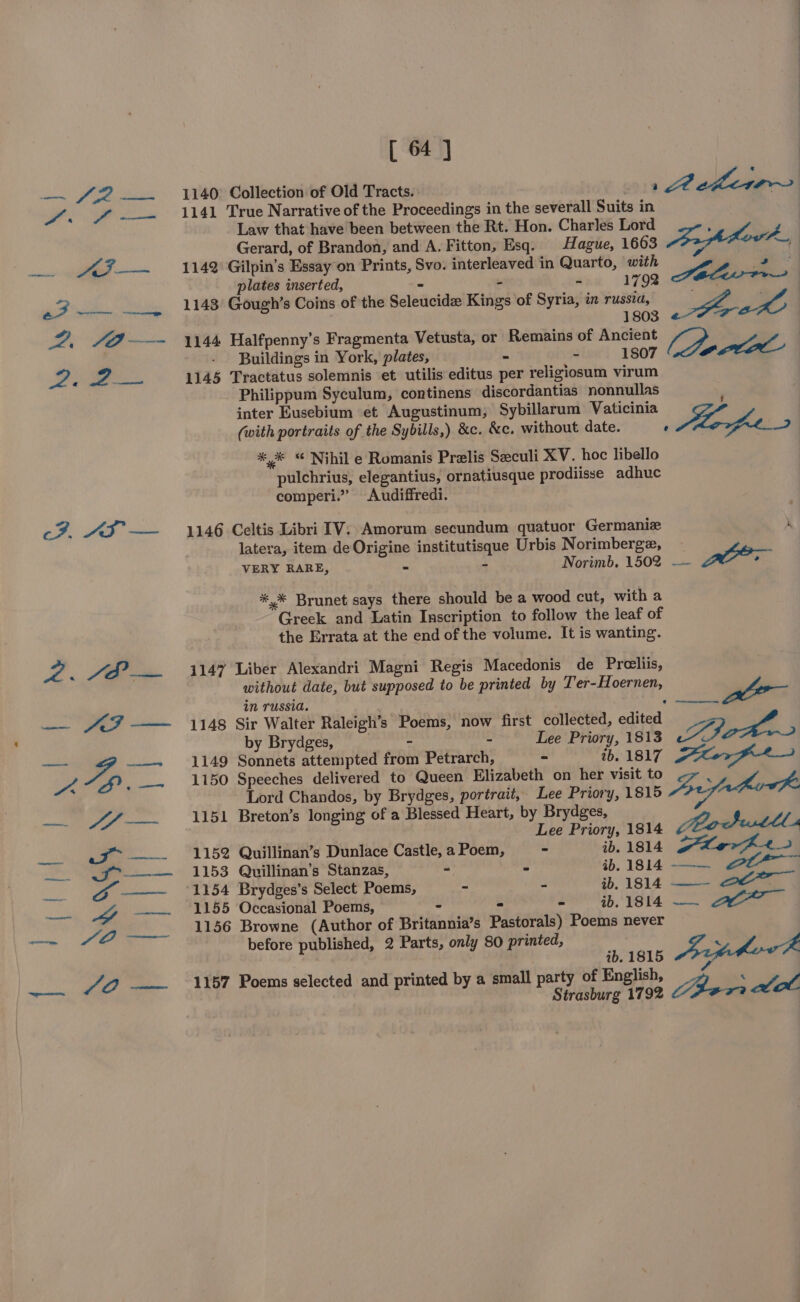 [ 64 ]
— 12 — 1140 Collection of Old Tracts.
1. 1 — 1141 True Narrative of the Proceedings in the severall Suits in
Law that have been between the Rt. Hon. Charles Lord
Gerard, of Brandon, and A. Fitton, Esq. Hague, 1663
— 13 — 1142 Gilpin's Essay on Prints, 8vo. interleaved in Quarto, with
plates inserted, - - - 1792
3 — — 1143 Gough's Coins of the Seleucidæ Kings of Syria, in russia,
1803
2. 10 — 1144 Halfpenny's Fragmenta Vetusta, or Remains of Ancient
Buildings in York, plates, - - 1807
2. 2 — 1145 Tractatus solemnis et utilis editus per religiosum virum
Philippum Syculum, continens discordantias nonnullas
inter Eusebium et Augustinum, Sybillarum Vaticinia
(with portraits of the Sybills,) &c. &c. without date. Thorpe
*⁎* “ Nihil e Romanis Prælis Sæculi XV. hoc libello
pulchrius, elegantius, ornatiusque prodiisse adhuc
comperi.” Audiffredi.
3. 15 — 1146 Celtis Libri IV. Amorum secundum quatuor Germaniæ
latera, item de Origine institutisque Urbis Norimbergæ,
VERY RARE, - - Norimb. 1502 — do —
*⁎* Brunet says there should be a wood cut, with a
Greek and Latin Inscription to follow the leaf of
the Errata at the end of the volume. It is wanting.
2. 18 — 1147 Liber Alexandri Magni Regis Macedonis de Prœliis,
without date, but supposed to be printed by Ter-Hoernen,
in russia. — do —
— 13 — 1148 Sir Walter Raleigh's Poems, now first collected, edited
by Brydges, - - Lee Priory, 1813
— 9 — 1149 Sonnets attempted from Petrarch, - ib. 1817 Thorpe
1. 18. — 1150 Speeches delivered to Queen Elizabeth on her visit to
Lord Chandos, by Brydges, portrait, Lee Priory, 1815
— 11 — 1151 Breton's longing of a Blessed Heart, by Brydges,
Lee Priory, 1814 Rodwell
— 5 — 1152 Quillinan's Dunlace Castle, a Poem, - ib. 1814 Thorpe
— 5 — 1153 Quillinan's Stanzas, - - ib. 1814 — do —
— 6 — 1154 Brydges's Select Poems, - - ib. 1814 — do —
— 4 — 1155 Occasional Poems, - - - ib. 1814 — do —
1156 Browne (Author of Britannia's Pastorals) Poems never
— 10 — before published, 2 Parts, only 80 printed,
ib. 1815
— 10 — 1157 Poems selected and printed by a small party of English,
Strasburg 1792